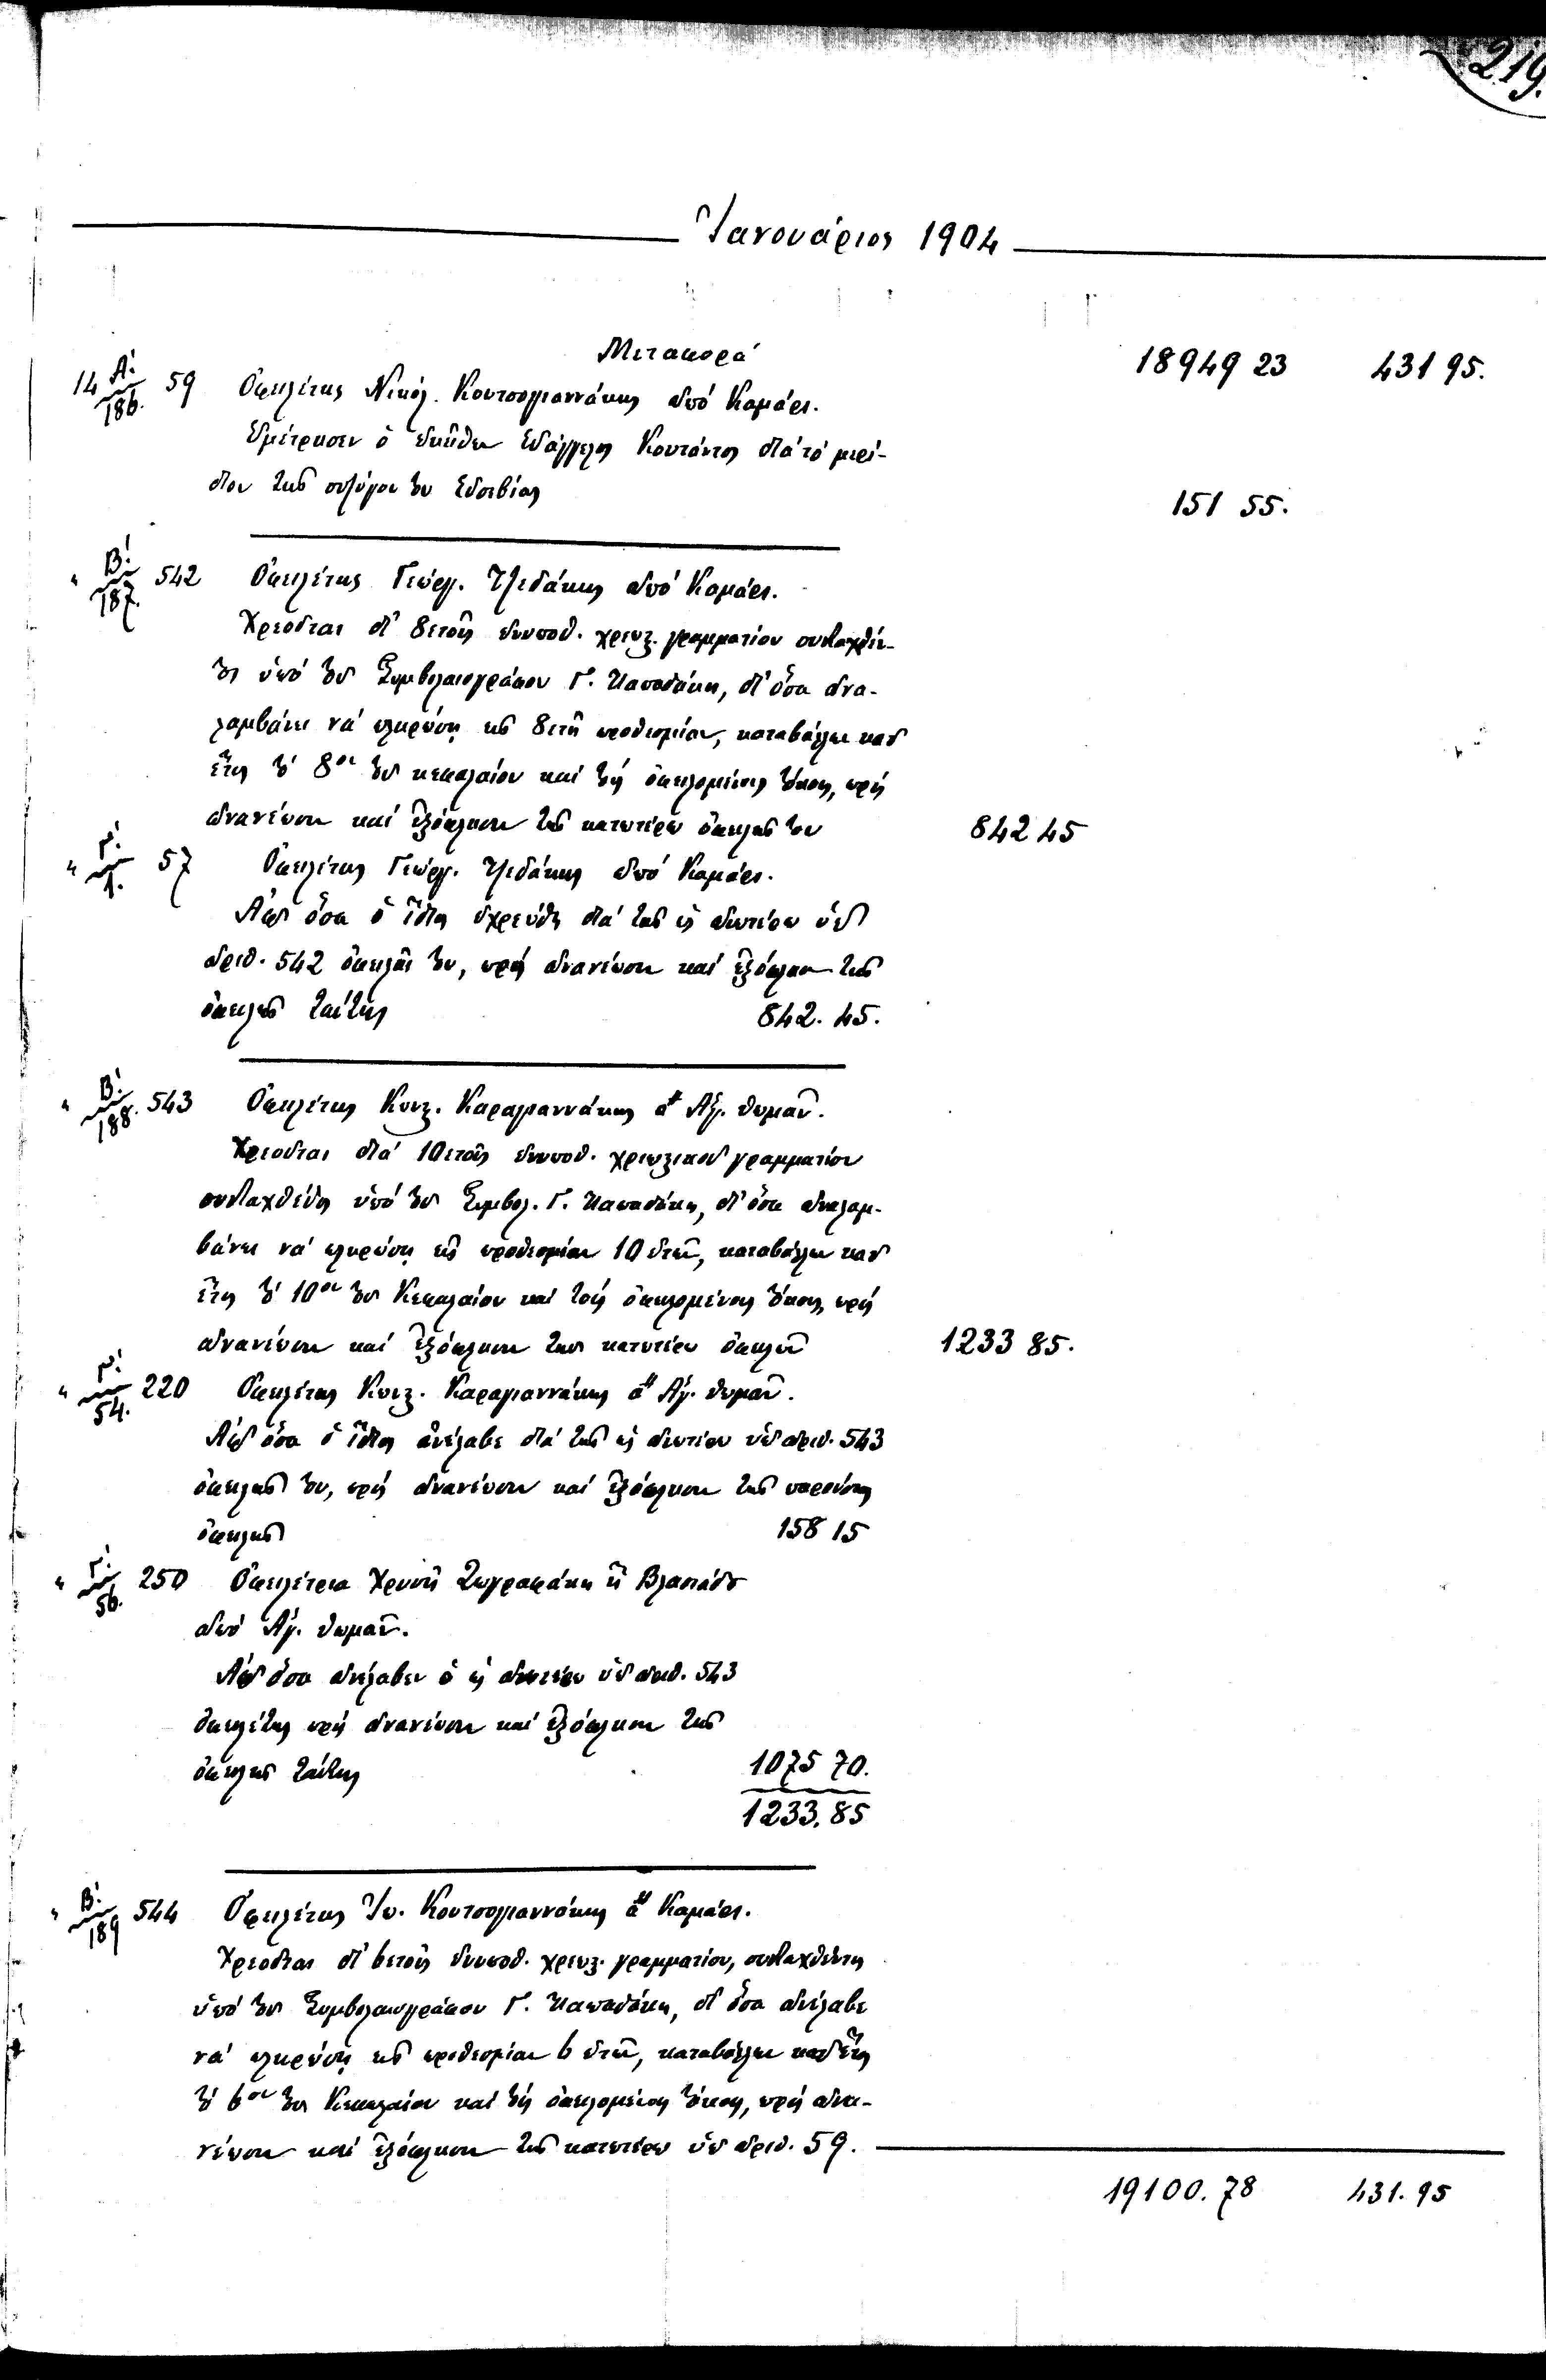 219.
Ἰανουάριος 1904
Μεταφορά 18949 23 431 95.
14 Α! 186. 59 Ὀφειλέτης Νικόλ. Κουτσογιαννάκης ἀπό Καμάρι.
Ἐμέτρησεν ὁ ἐκεῖθεν Εὐάγγελος διά τό μερί-
διον τῆς συζύγου του Εὐσεβίας 151 55.
" Β! 187. 542 Ὀφειλέτης Γεώργ. ἀπό Καμάρι.
Χρεοῦται δι' 8ετοῦς ἐνυποθ. χρεωσ. γραμματίου συνταχθέν-
τος ὑπό τοῦ Συμβολαιογράφου Γ. Παπαδάκη, δι' ὅσα ἀνα-
λαμβάνει νά πληρώσῃ εἰς 8ετῆ προθεσμίαν, καταβάλλων κατ'
ἔτος τό 8ον τοῦ κεφαλαίου καί τούς ὀφειλομένους τόκους, πρός
ἀνανέωσιν καί ἐξόφλησιν τῆς κατωτέρω ὀφειλῆς του 842 45
" Γ! 1. 57 Ὀφειλέτης Γεώργ. ἀπό Καμάρι.
Ἀφ' ὅσα ὁ ἴδιος ἐχρεώθη διά τῆς ὡς ἀνωτέρω ὑπ'
ἀριθ. 542 ὀφειλῆς του, πρός ἀνανέωσιν καί ἐξόφλησιν τῆς
ὀφειλῆς ταύτης 842. 45.
" Β! 188. 543 Ὀφειλέτης Κωνσ. Καραγιαννάκης ἀπ Ἁγ. Θωμᾶν.
Χρεοῦται διά 10ετοῦς ἐνυποθ. χρεωστικοῦ γραμματίου
συνταχθέντος ὑπό τοῦ Συμβολ. Γ. Παπαδάκη, δι' ὅσα ἀναλαμ-
βάνει νά πληρώσῃ εἰς προθεσμίαν 10 ἐτῶν, καταβάλλων κατ'
ἔτος τό 10ον τοῦ Κεφαλαίου καί τούς ὀφειλομένους τόκους, πρός
ἀνανέωσιν καί ἐξόφλησιν τῶν κατωτέρω ὀφειλῶν 1233 85.
" Γ! 54. 220 Ὀφειλέτης Κωνσ. Καραγιαννάκης ἀπ Ἁγ. Θωμᾶν.
Ἀφ' ὅσα ὁ ἴδιος ἀνέλαβε διά τῆς ὡς ἀνωτέρω ὑπ' ἀριθ. 543
ὀφειλῆς του, πρός ἀνανέωσιν καί ἐξόφλησιν τῆς παρούσης
ὀφειλῆς 158 15
" Γ! 56. 250 Ὀφειλέτρια Χρυσῆ Ζωγραφάκη ἤ
ἀπό Ἁγ. Θωμᾶν.
Ἀφ' ὅσα ἀνέλαβεν ὁ ὡς ἀνωτέρω ὑπ' ἀριθ. 543
ὀφειλέτης πρός ἀνανέωσιν καί ἐξόφλησιν τῆς
ὀφειλῆς ταύτης 1075 70.
1233. 85
" Β! 189 544 Ὀφειλέτης Ἰω. Κουτσογιαννάκης ἀπ Καμάρι.
Χρεοῦται δι' 6ετοῦς ἐνυποθ. χρεωσ. γραμματίου, συνταχθέντος
ὑπό τοῦ Συμβολαιογράφου Γ. Παπαδάκη, δι' ὅσα ἀνέλαβε
νά πληρώσῃ εἰς προθεσμίαν 6 ἐτῶν, καταβάλλων κατ' ἔτος
τό 6ον τοῦ Κεφαλαίου καί τούς ὀφειλομένους τόκους, πρός ἀνα-
νέωσιν καί ἐξόφλησιν τῆς κατωτέρω ὑπ' ἀριθ. 59.
19100. 78 431. 95